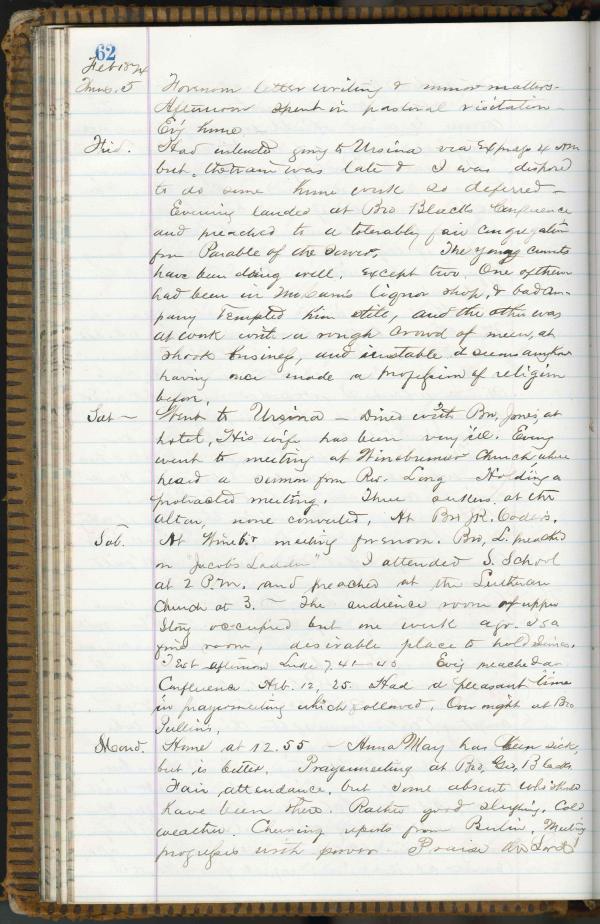 62
Feb 1874
Thurs. 5 Forenoon letter writing & minor matters.
Afternoon spent in pastoral visitation
Ev'g home
Frid. Had intended going to Ursina via Ex
but train was late & I was disposed
to do some home work so deferred—
Evening landed at Bro Blacks Confluence
and preached to a tolerably fair congregation
from Parable of the Sower. The young converts
have been doing well, except two. One of them
had been in liquor shop, & bad com-
pany tempted him still, and the other was
at work with a rough crowd of men, at
shook business, and unstable it seems anyhow
having once made a profession of religion
before.
Sat— Went to Ursina — Dined with Bro. Jones, at
hotel, His wife has been very ill. Even'g
went to meeting at Winebrenner Church, where
heard a sermon from Rev. Long Holding a
protracted meeting. Three seekers, at the
altar, none converted. At Bro JR.
Sab. At Wineb'r meeting forenoon. Bro, L. preached
on "Jacobs Ladder" I attended S. School
at 2 P.M. and preached at the Lutheran
Church at 3. — The audience room of upper
story occupied but one week ago. Is a
good room, desirable place to hold
Text afternoon Luke 7. 41—43 Ev'g preached at
Confluence Heb. 12, 25. Had a pleasant time
in prayermeeting which followed, Over night at Bro
Mond. Home at 12.55 — Anna May has been sick,
but is better. Prayermeeting at Bro, Geo, Blacks
Fair attendance, but some absent who should
have been there. Rather good sleighing, Cold
weather. Cheering reports from Berlin, Meeting
progresses with power. Praise the Lord!